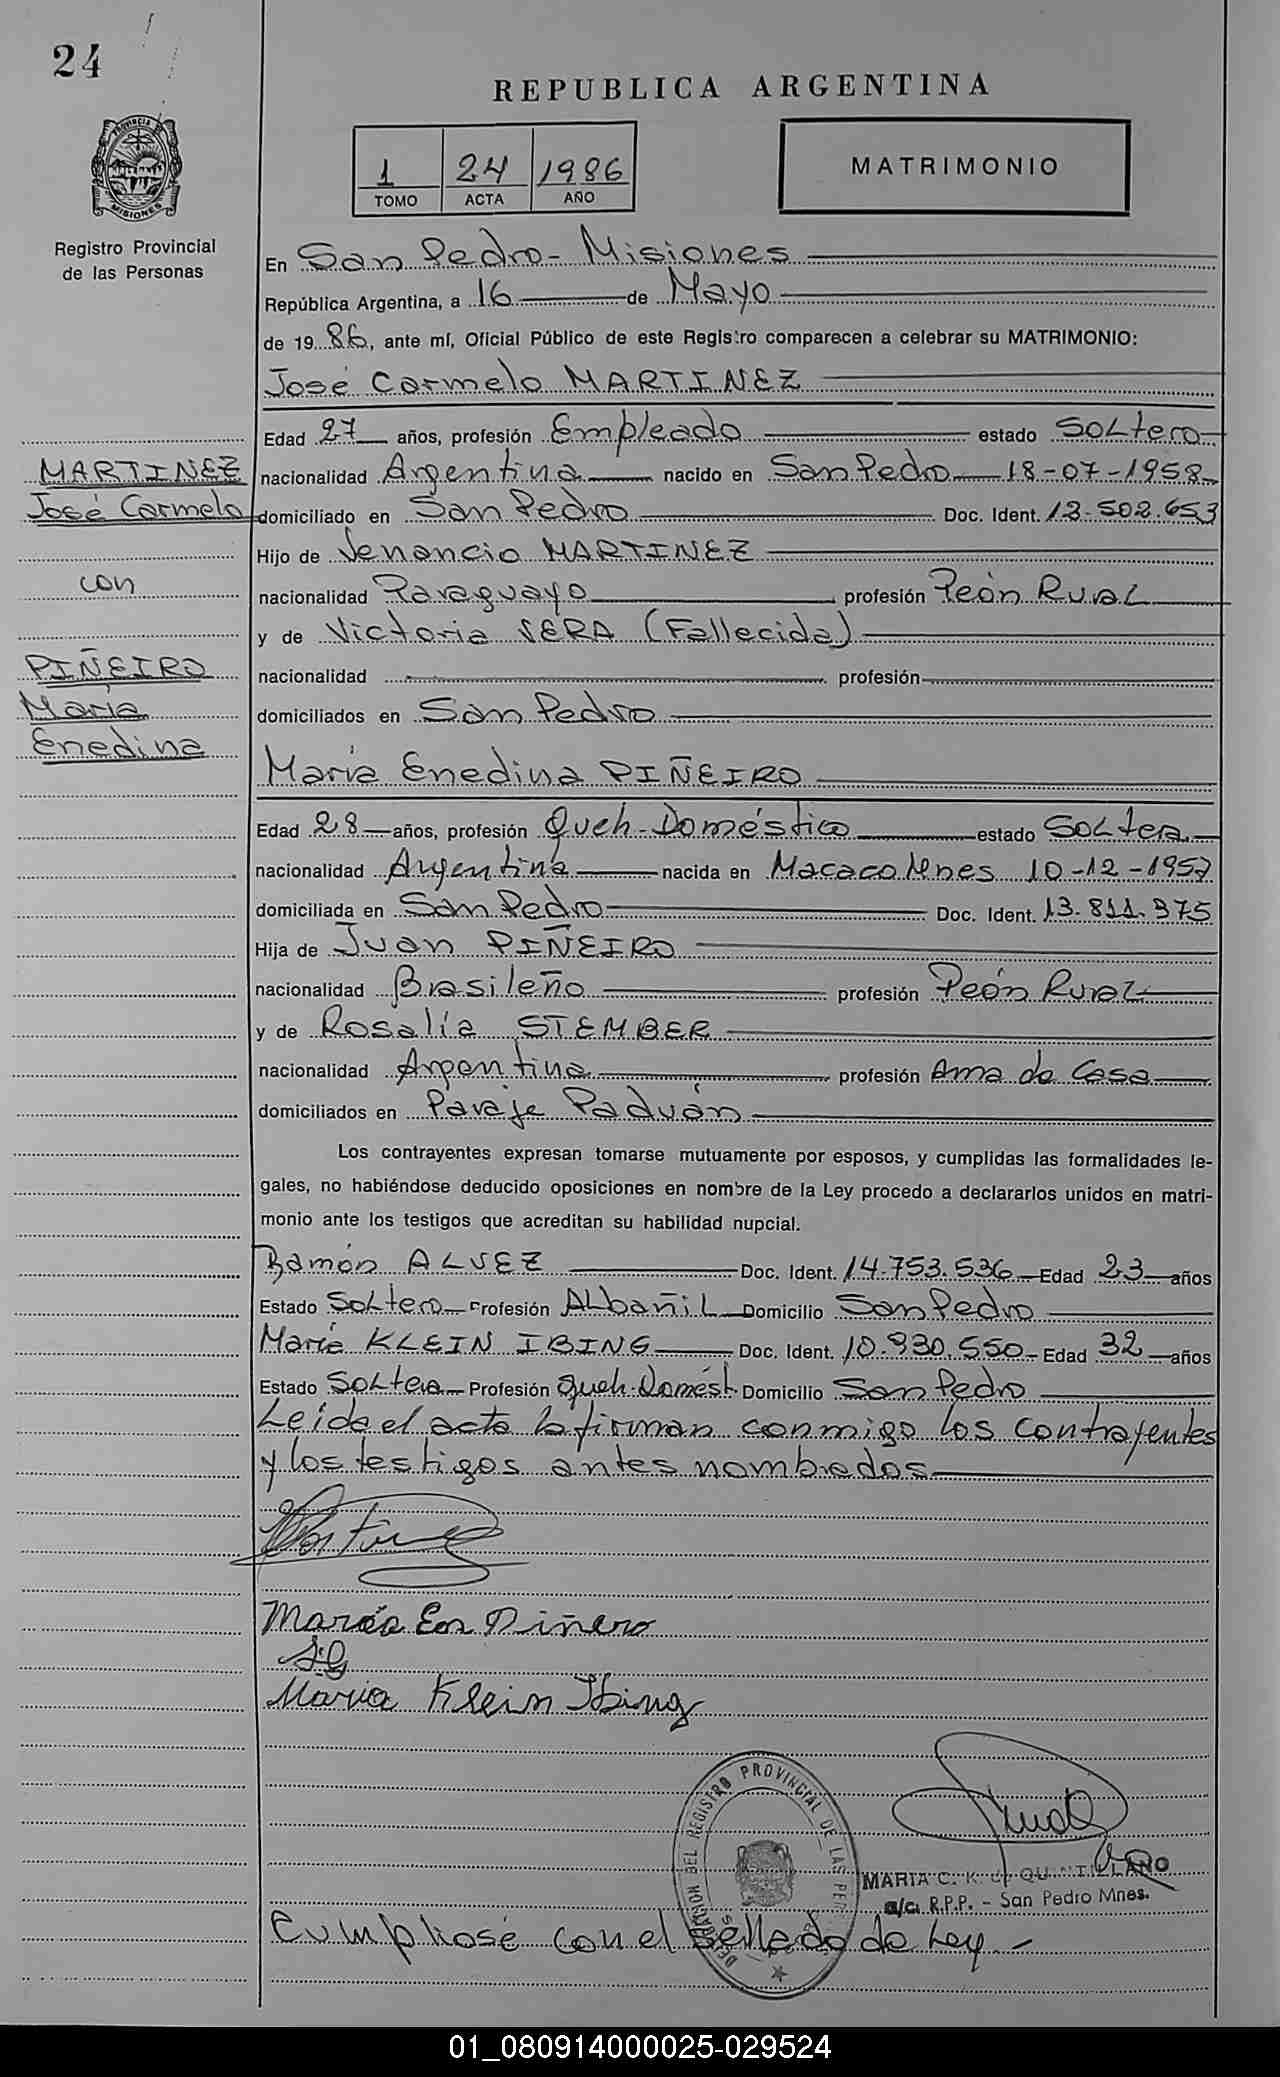 24
REPUBLICA ARGENTINA
1 24 1986
TOMO ACTA AÑO
MATRIMONIO
PROVINCIA DE MISIONES
Registro Provincial
de las Personas
En San Pedro - Misiones
República Argentina, a 16 de Mayo
de 1986, ante mí, Oficial Público de este Registro comparecen a celebrar su MATRIMONIO:
José Carmelo MARTINEZ
Edad 27 años, profesión Empleado estado Soltero
MARTINEZ
nacionalidad Argentina nacido en San Pedro 18-07-1958
José Carmelo
domiciliado en San Pedro Doc. Ident. 12.502.653
Hijo de Venancio MARTINEZ
con
nacionalidad Paraguayo profesión Peón Rural
y de Victoria VERA (Fallecida)
PIÑEIRO
nacionalidad profesión
María
domiciliados en San Pedro
Enedina
María Enedina PIÑEIRO
Edad 28 años, profesión Queh-Doméstico estado Soltera
nacionalidad Argentina nacida en Macaco Mnes 10-12-1957
domiciliada en San Pedro Doc. Ident. 13.811.375
Hija de Juan PIÑEIRO
nacionalidad Brasileño profesión Peón Rural
y de Rosalía STEMBER
nacionalidad Argentina profesión Ama de Casa
domiciliados en Paraje Paduán
Los contrayentes expresan tomarse mutuamente por esposos, y cumplidas las formalidades le-
gales, no habiéndose deducido oposiciones en nombre de la Ley procedo a declararlos unidos en matri-
monio ante los testigos que acreditan su habilidad nupcial.
Ramón ALVEZ Doc. Ident. 14.753.536 Edad 23 años
Estado Soltero Profesión Albañil Domicilio San Pedro
María KLEIN IBING Doc. Ident. 10.930.550 Edad 32 años
Estado Soltera Profesión Queh-Domést. Domicilio San Pedro
Leída el acta la firman conmigo los contrayentes
y los testigos antes nombrados
Martinez
María En Piñero
Maria Klein Ibing
DELEGACION DEL REGISTRO PROVINCIAL DE LAS PER
MARIA C. K. de QUINTILLANO
a/c. R.P.P. - San Pedro Mnes.
Cumpliose con el sellado de Ley.-
01_080914000025-029524